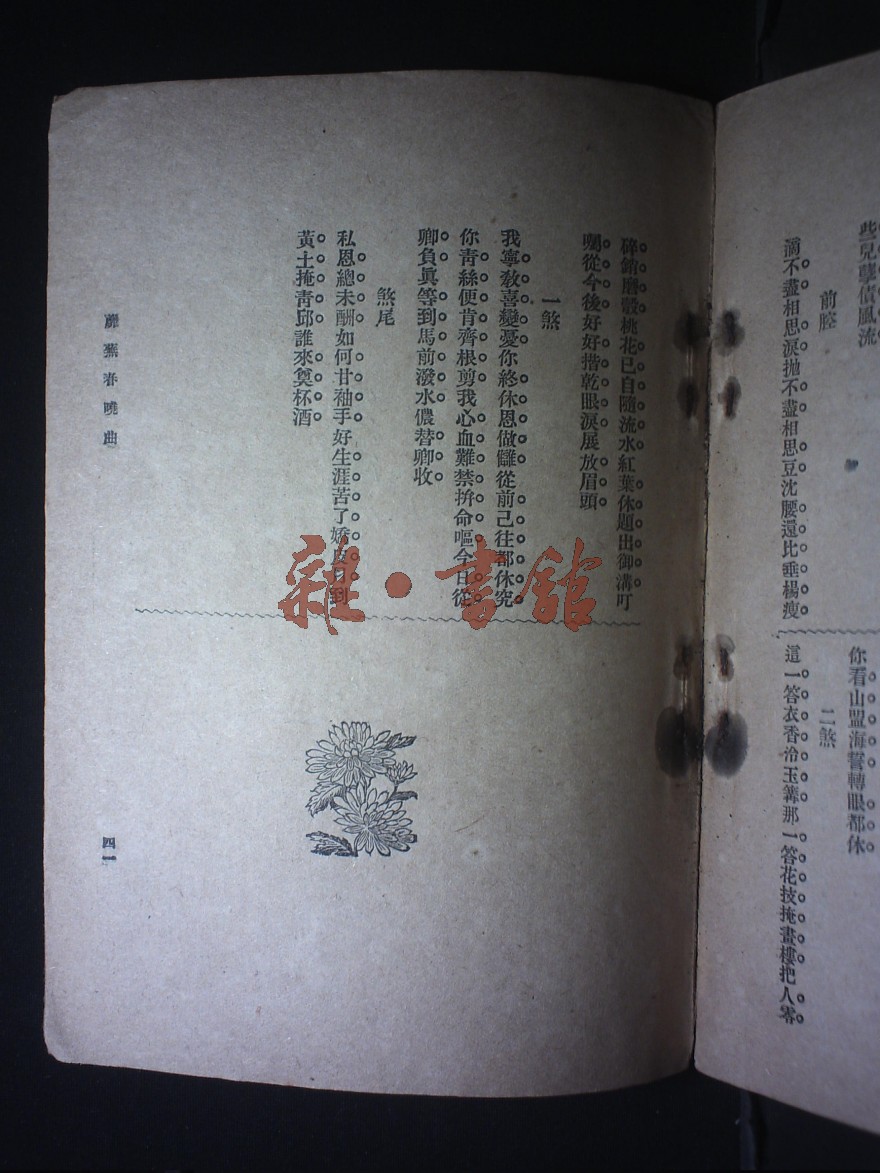 些兒孽債風流
前腔
滴不盡相思淚拋不盡相思豆沈腰還比垂楊瘦
你看山盟海誓轉眼都休
二煞
這一答衣香冷玉篝那一答花技掩畫樓把人零
碎銷磨殼桃花已自隨流水紅葉休題出御溝叮
囑從今後好好揩乾眼淚展放眉頭
一煞
我寧教喜變憂你終休恩做讎從前已往都休究
你青絲便肯齊根剪我心血難禁拚命嘔今日從
卿負眞等到馬前潑水儂替卿收
煞尾
私恩總未酬如何甘袖手好生涯苦了嬌皮
到
黃土掩靑邱誰來奠杯酒
蘼蕪春曉曲
四一
雜·書館